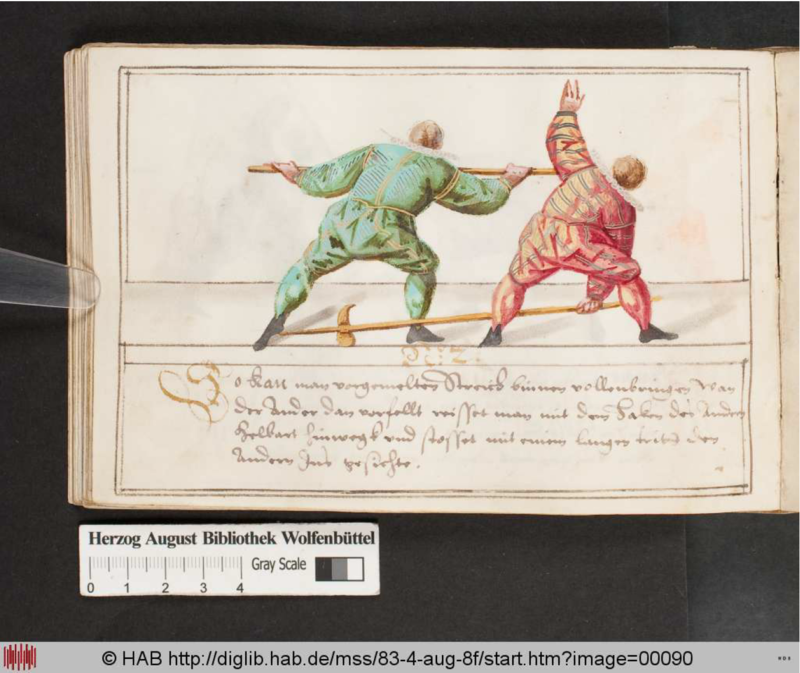 So kan man vorgemelten Streich binnen vollenbringen Wan
der Ander dan vorfellt reisset man mit dem Haken des Andern
Helbart hinwegk und stosset mit einem langen trit den
Andern Ins gesichte.
Herzog August Bibliothek Wolfenbüttel
Gray Scale
0 1 2 3 4
© HAB http://diglib.hab.de/mss/83-4-aug-8f/start.htm?image=00090